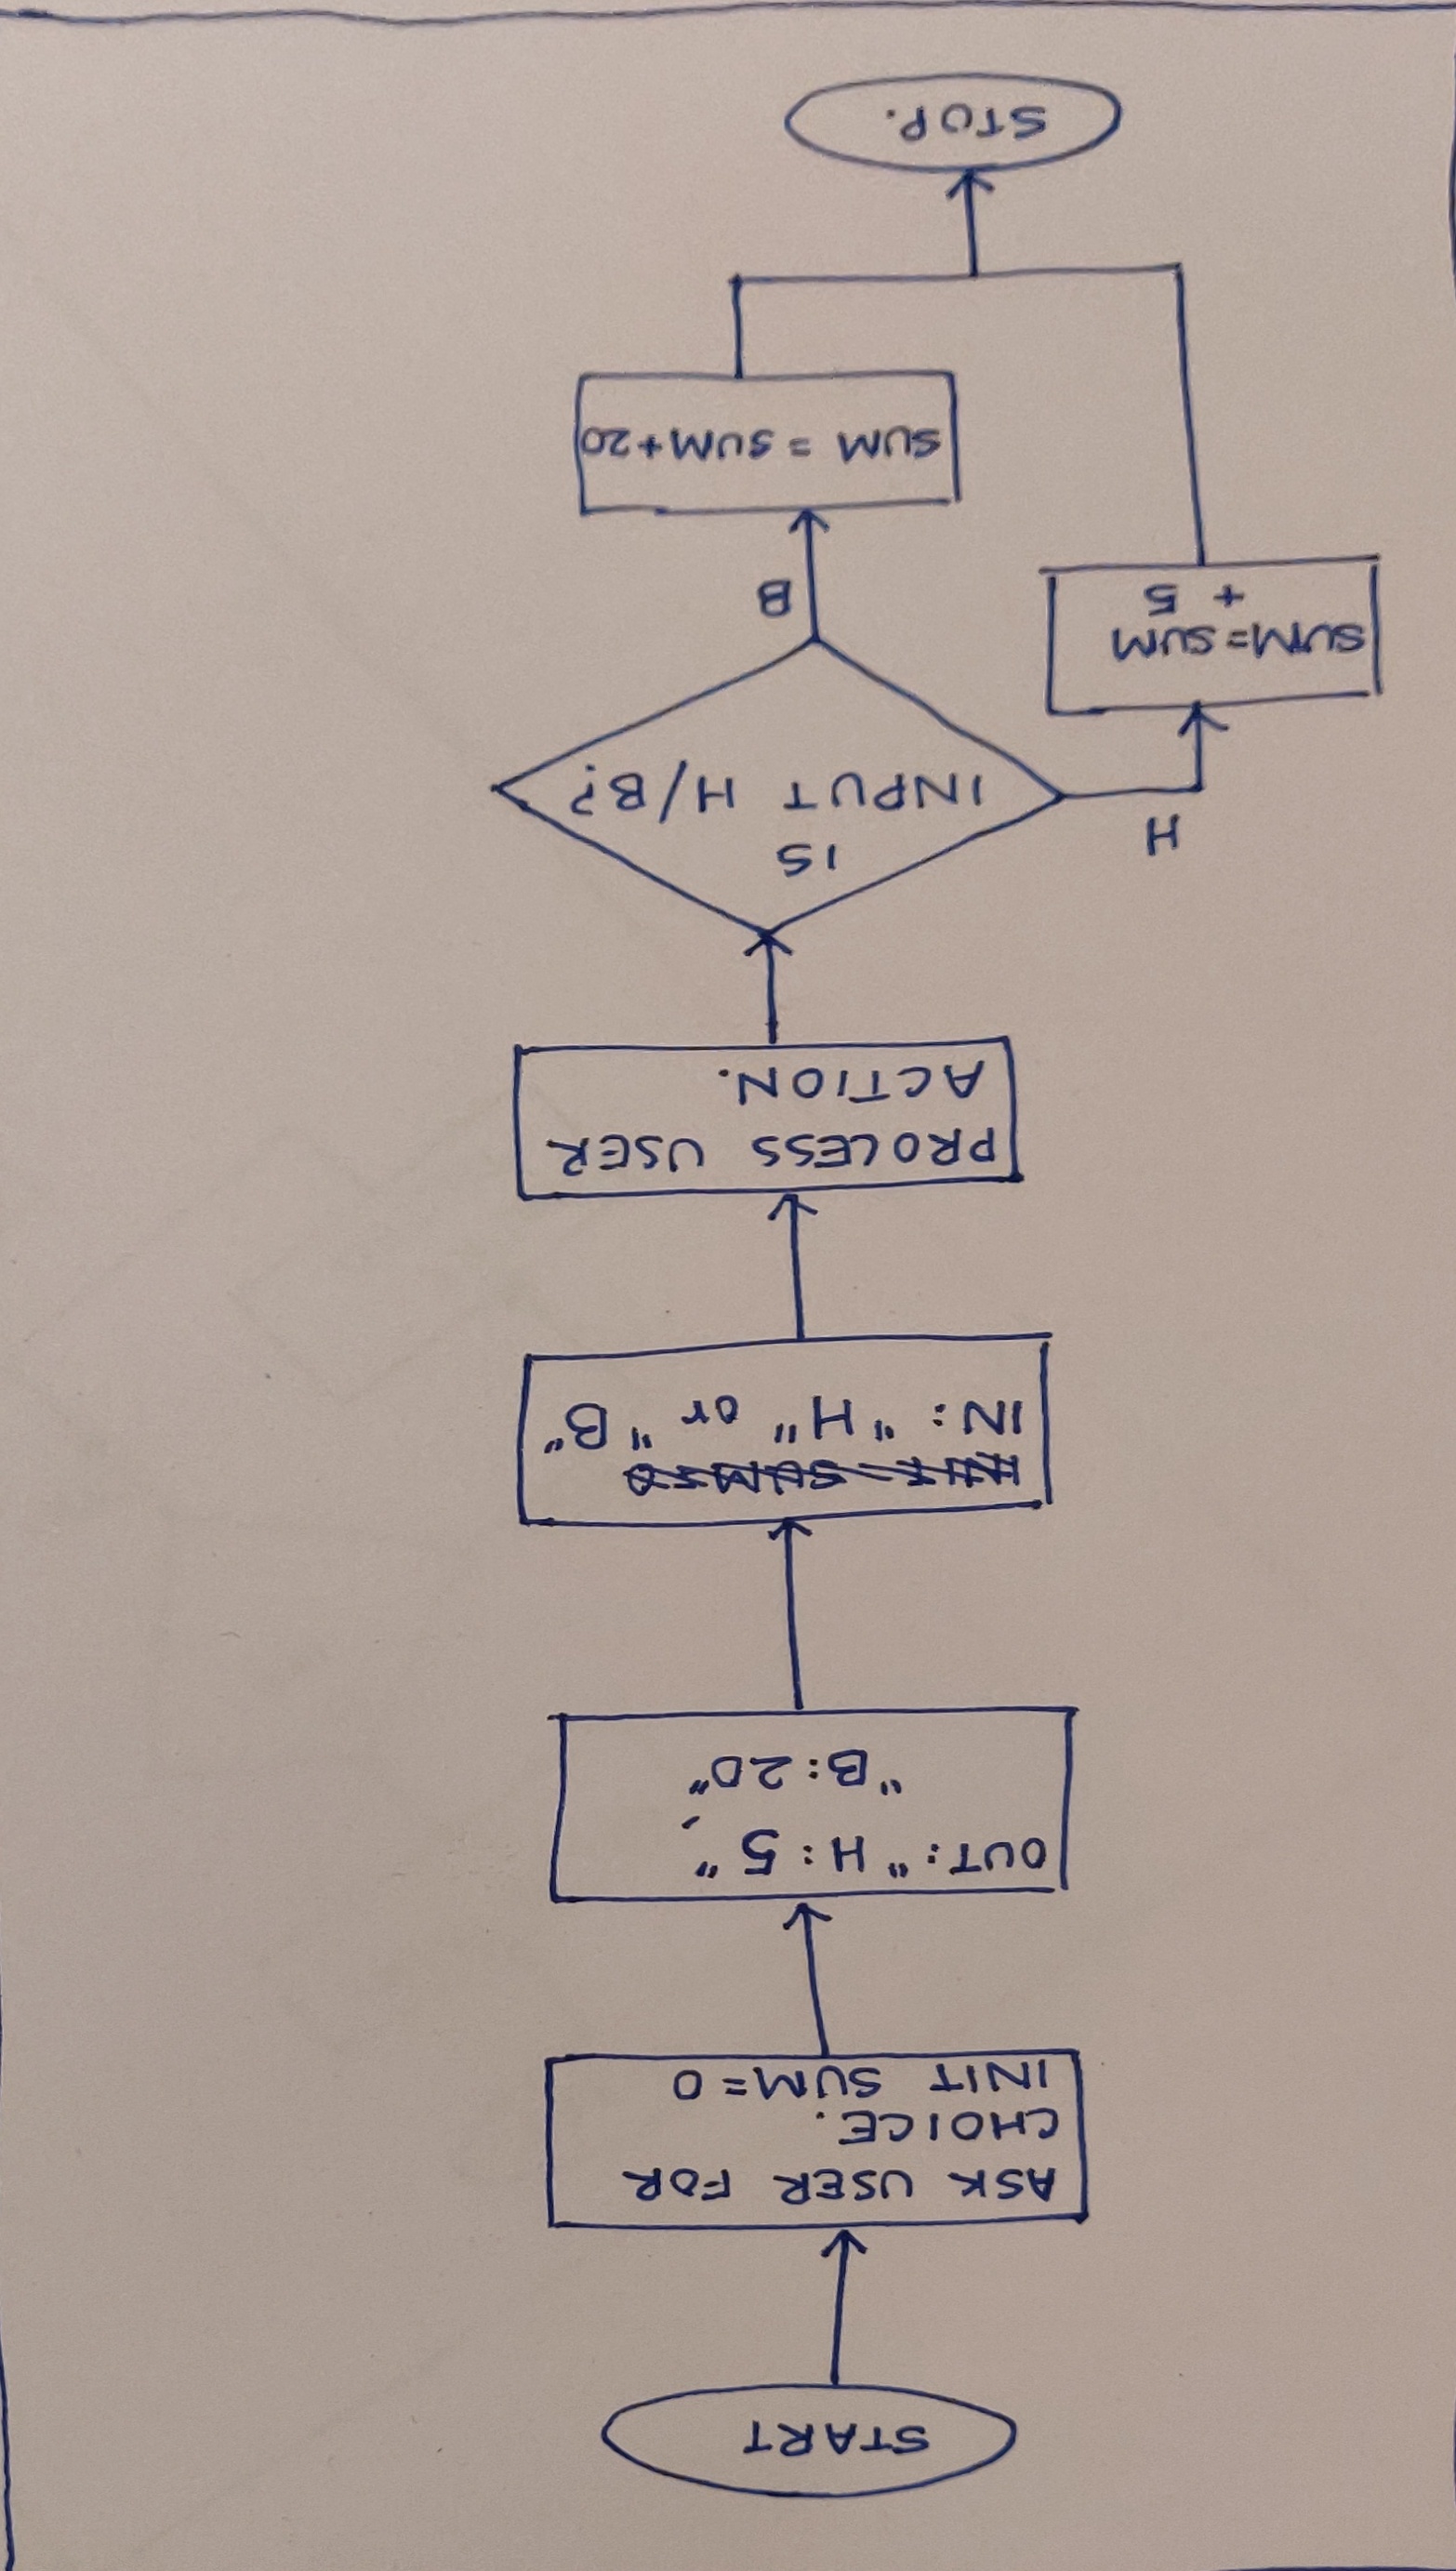 START
ASK USER FOR
CHOICE.
INIT SUM=0
OUT: "H:5",
"B:20"
INIT SUM=0
IN: "H" or "B"
PROCESS USER
ACTION.
IS
INPUT H/B?
H
SUM=SUM
+ 5
B
SUM = SUM+20
STOP.